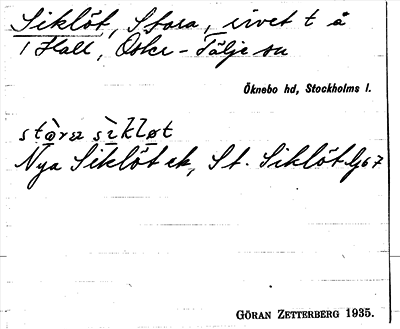 Siklöt, Stora, rivet t å
1 Hall, Öster-Tälje sn
Öknebo hd, Stockholms l.
stὼra sìkløt
Nya Siklöt ek, St. Siklöt Gj67
GÖRAN ZETTERBERG 1935.